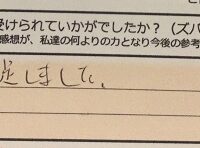 受けられていかがでしたか？（ズバ
感想が、私達の何よりの力となり今後の参考
しまして、